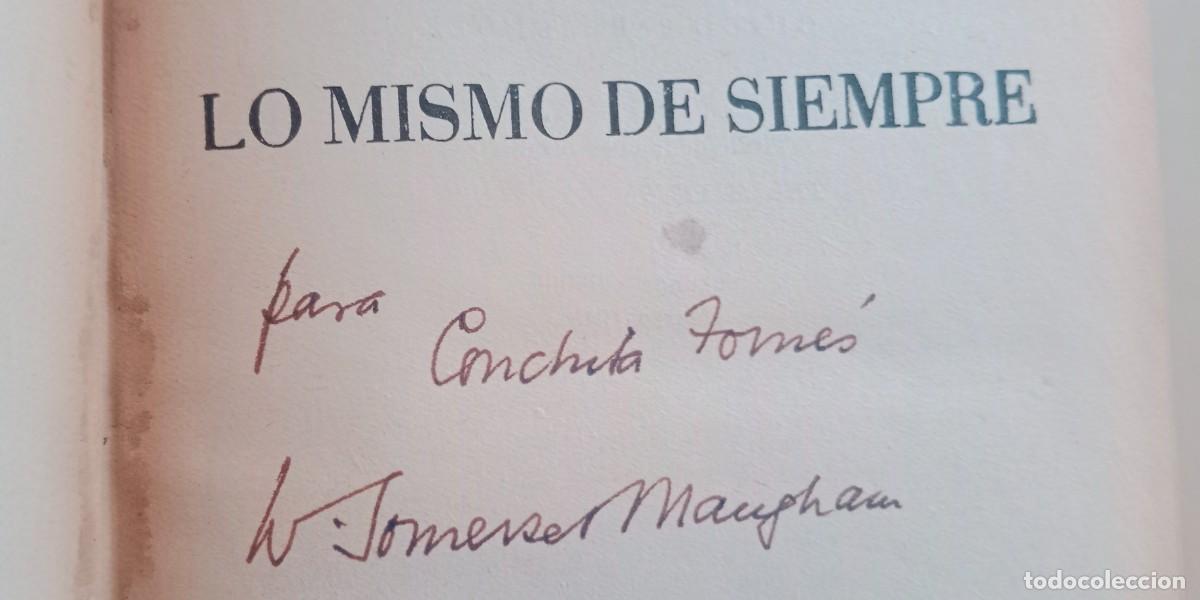 LO MISMO DE SIEMPRE
para
Conchita Tomés
W. Somerset Maugham
todocoleccion